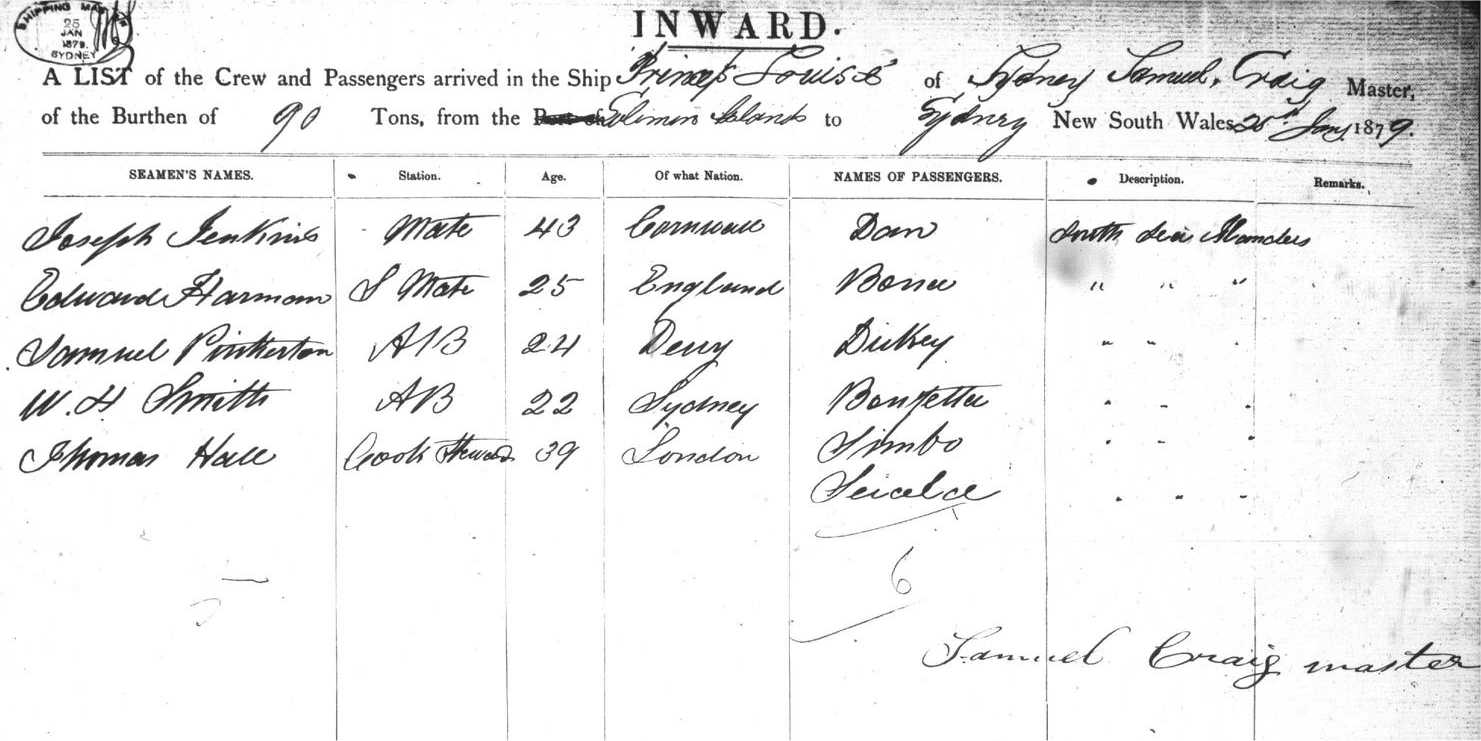 SHIPPING MAS
25
JAN
1879.
SYDNEY
INWARD.
A LIST of the Crew and Passengers arrived in the Ship Princess Louise of Sydney Samuel Craig Master,
of the Burthen of 90 Tons, from the Port of Solomon Islands to Sydney New South Wales 25th Jany 1879.
SEAMEN'S NAMES. Station. Age. Of what Nation. NAMES OF PASSENGERS. Description. Remarks.
Joseph Jenkins Mate 43 Cornwall Dan South Sea Islanders
Edward Harman S Mate 25 England " " "
Samuel Pinkerton AB 24 Derry Dickey " " "
W. H Smith AB 22 Sydney " " "
Thomas Hall Cook Steward 39 London Simbo " " "
" " "
5
6
Samuel Craig master